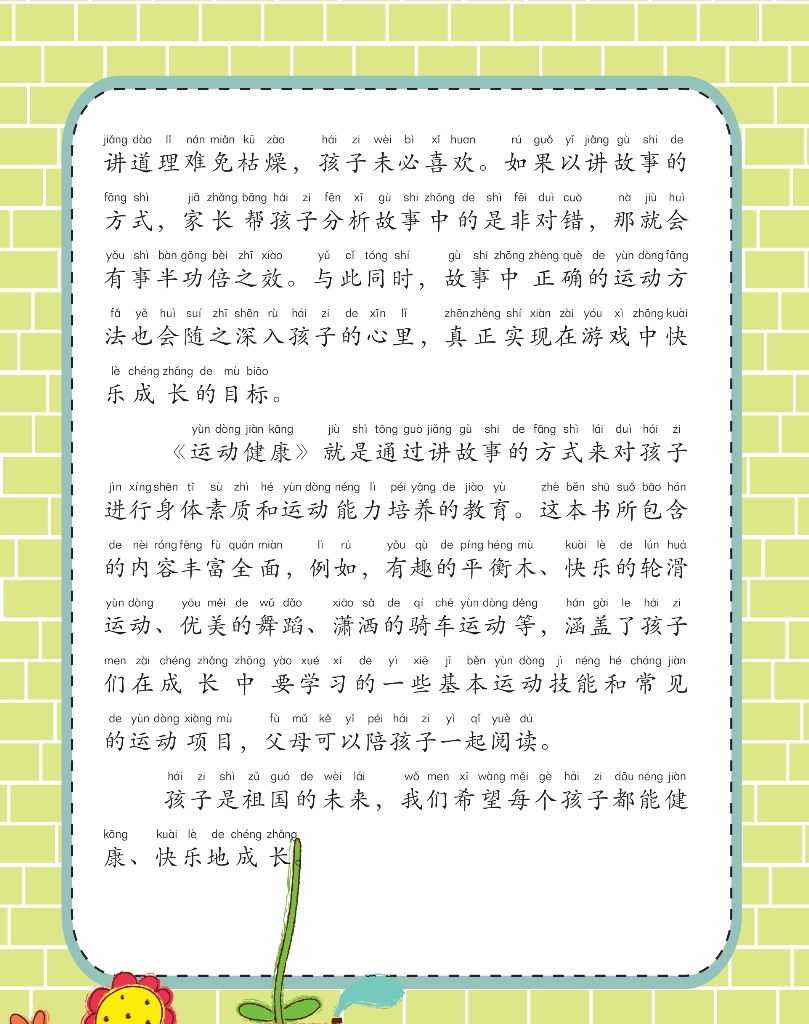 jiǎng dào lǐ nán miǎn kū zào hái zi wèi bì xǐ huan rú guǒ yǐ jiǎng gù shi de
讲道理难免枯燥，孩子未必喜欢。如果以讲故事的
fāng shì jiā zhǎng bāng hái zi fēn xī gù shi zhōng de shì fēi duì cuò nà jiù huì
方式，家长帮孩子分析故事中的是非对错，那就会
yǒu shì bàn gōng bèi zhī xiào yǔ cǐ tóng shí gù shi zhōng zhèng què de yùn dòng fāng
有事半功倍之效。与此同时，故事中正确的运动方
fǎ yě huì suí zhī shēn rù hái zi de xīn lǐ zhēn zhèng shí xiàn zài yóu xì zhōng kuài
法也会随之深入孩子的心里，真正实现在游戏中快
lè chéng zhǎng de mù biāo
乐成长的目标。
yùn dòng jiàn kāng jiù shì tōng guò jiǎng gù shi de fāng shì lái duì hái zi
《运动健康》就是通过讲故事的方式来对孩子
jìn xíng shēn tǐ sù zhì hé yùn dòng néng lì péi yǎng de jiào yù zhè běn shū suǒ bāo hán
进行身体素质和运动能力培养的教育。这本书所包含
de nèi róng fēng fù quán miàn lì rú yǒu qù de píng héng mù kuài lè de lún huá
的内容丰富全面，例如，有趣的平衡木、快乐的轮滑
yùn dòng yōu měi de wǔ dǎo xiāo sǎ de qí chē yùn dòng děng hán gài le hái zi
运动、优美的舞蹈、潇洒的骑车运动等，涵盖了孩子
men zài chéng zhǎng zhōng yào xué xí de yì xiē jī běn yùn dòng jì néng hé cháng jiàn
们在成长中要学习的一些基本运动技能和常见
de yùn dòng xiàng mù fù mǔ kě yǐ péi hái zi yì qǐ yuè dú
的运动项目，父母可以陪孩子一起阅读。
hái zi shì zǔ guó de wèi lái wǒ men xī wàng měi gè hái zi dōu néng jiàn
孩子是祖国的未来，我们希望每个孩子都能健
kāng kuài lè de chéng zhǎng
康、快乐地成长。